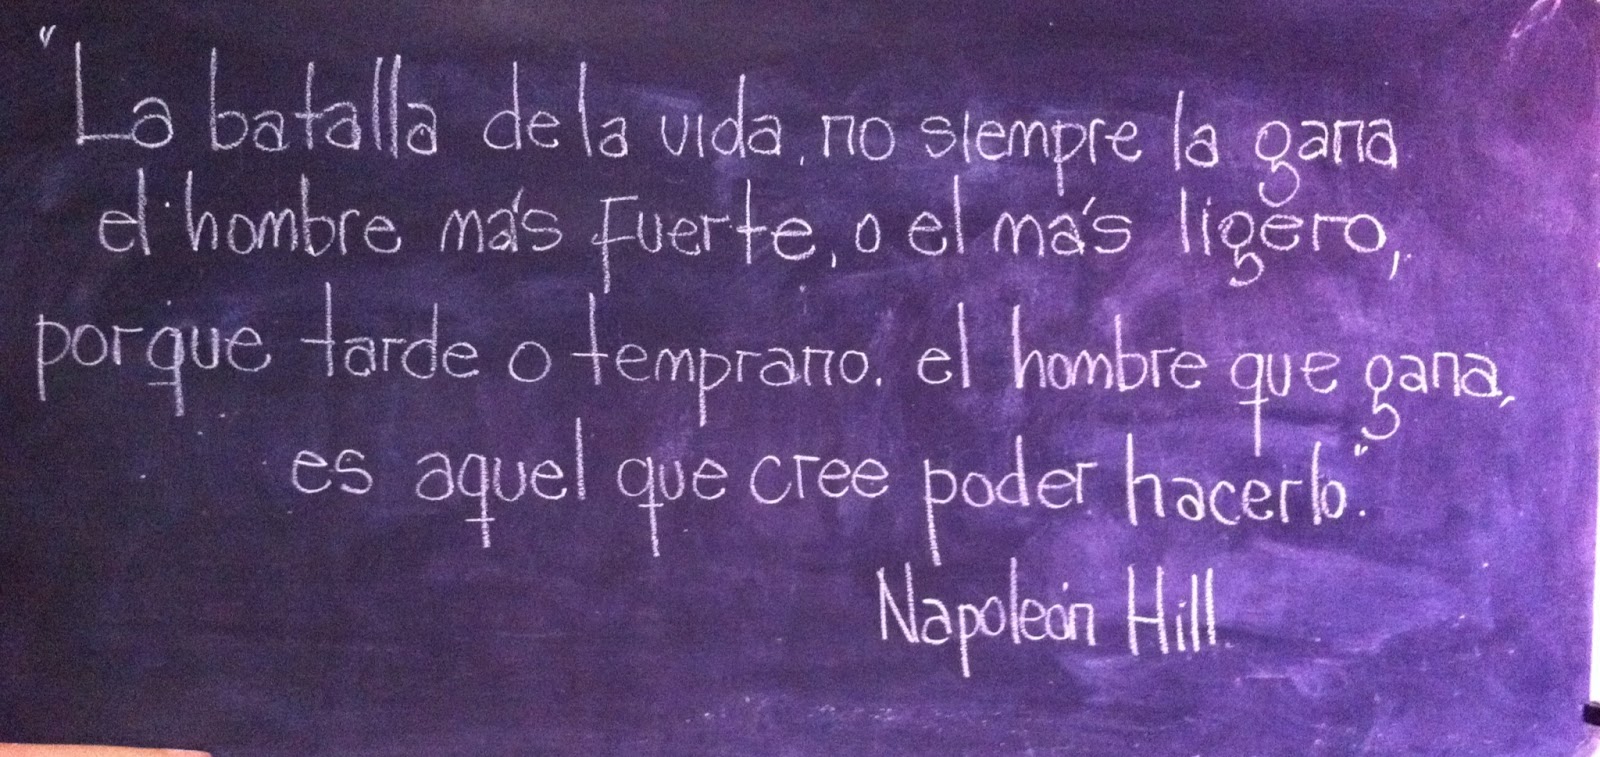 "La batalla de la vida, no siempre la gana
el hombre más fuerte, o el más ligero,
porque tarde o temprano. el hombre que gana,
es aquel que cree poder hacerlo".
Napoleón Hill